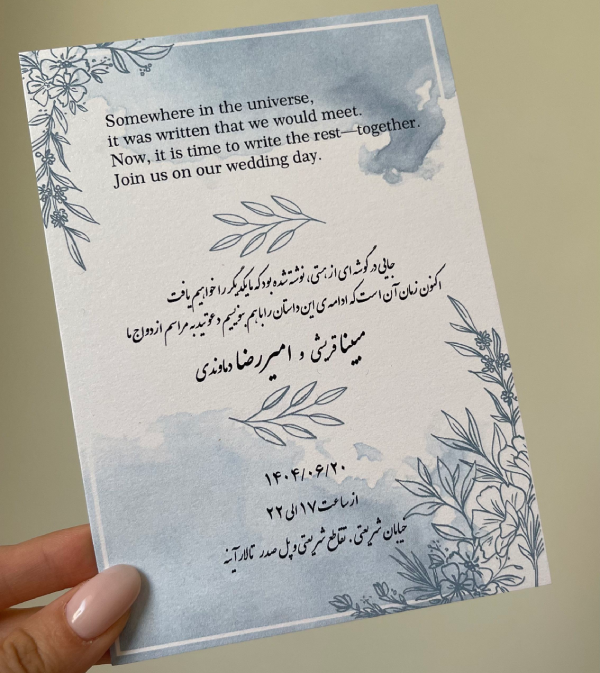 Somewhere in the universe,
it was written that we would meet.
Now, it is time to write the rest—together.
Join us on our wedding day.
جایی در گوشه ای از هستی، نوشته شده بود که ما یکدیگر را خواهیم یافت
اکنون زمان آن است که ادامه ی این داستان را با هم بنویسیم دعوتید به مراسم ازدواج ما
مبینا قریشی و امیررضا دماوندی
۱۴۰۴/۰۶/۲۰
از ساعت ۱۷ الی ۲۲
خیابان شریعتی. تقاطع شریعتی و پل صدر تالار آینه